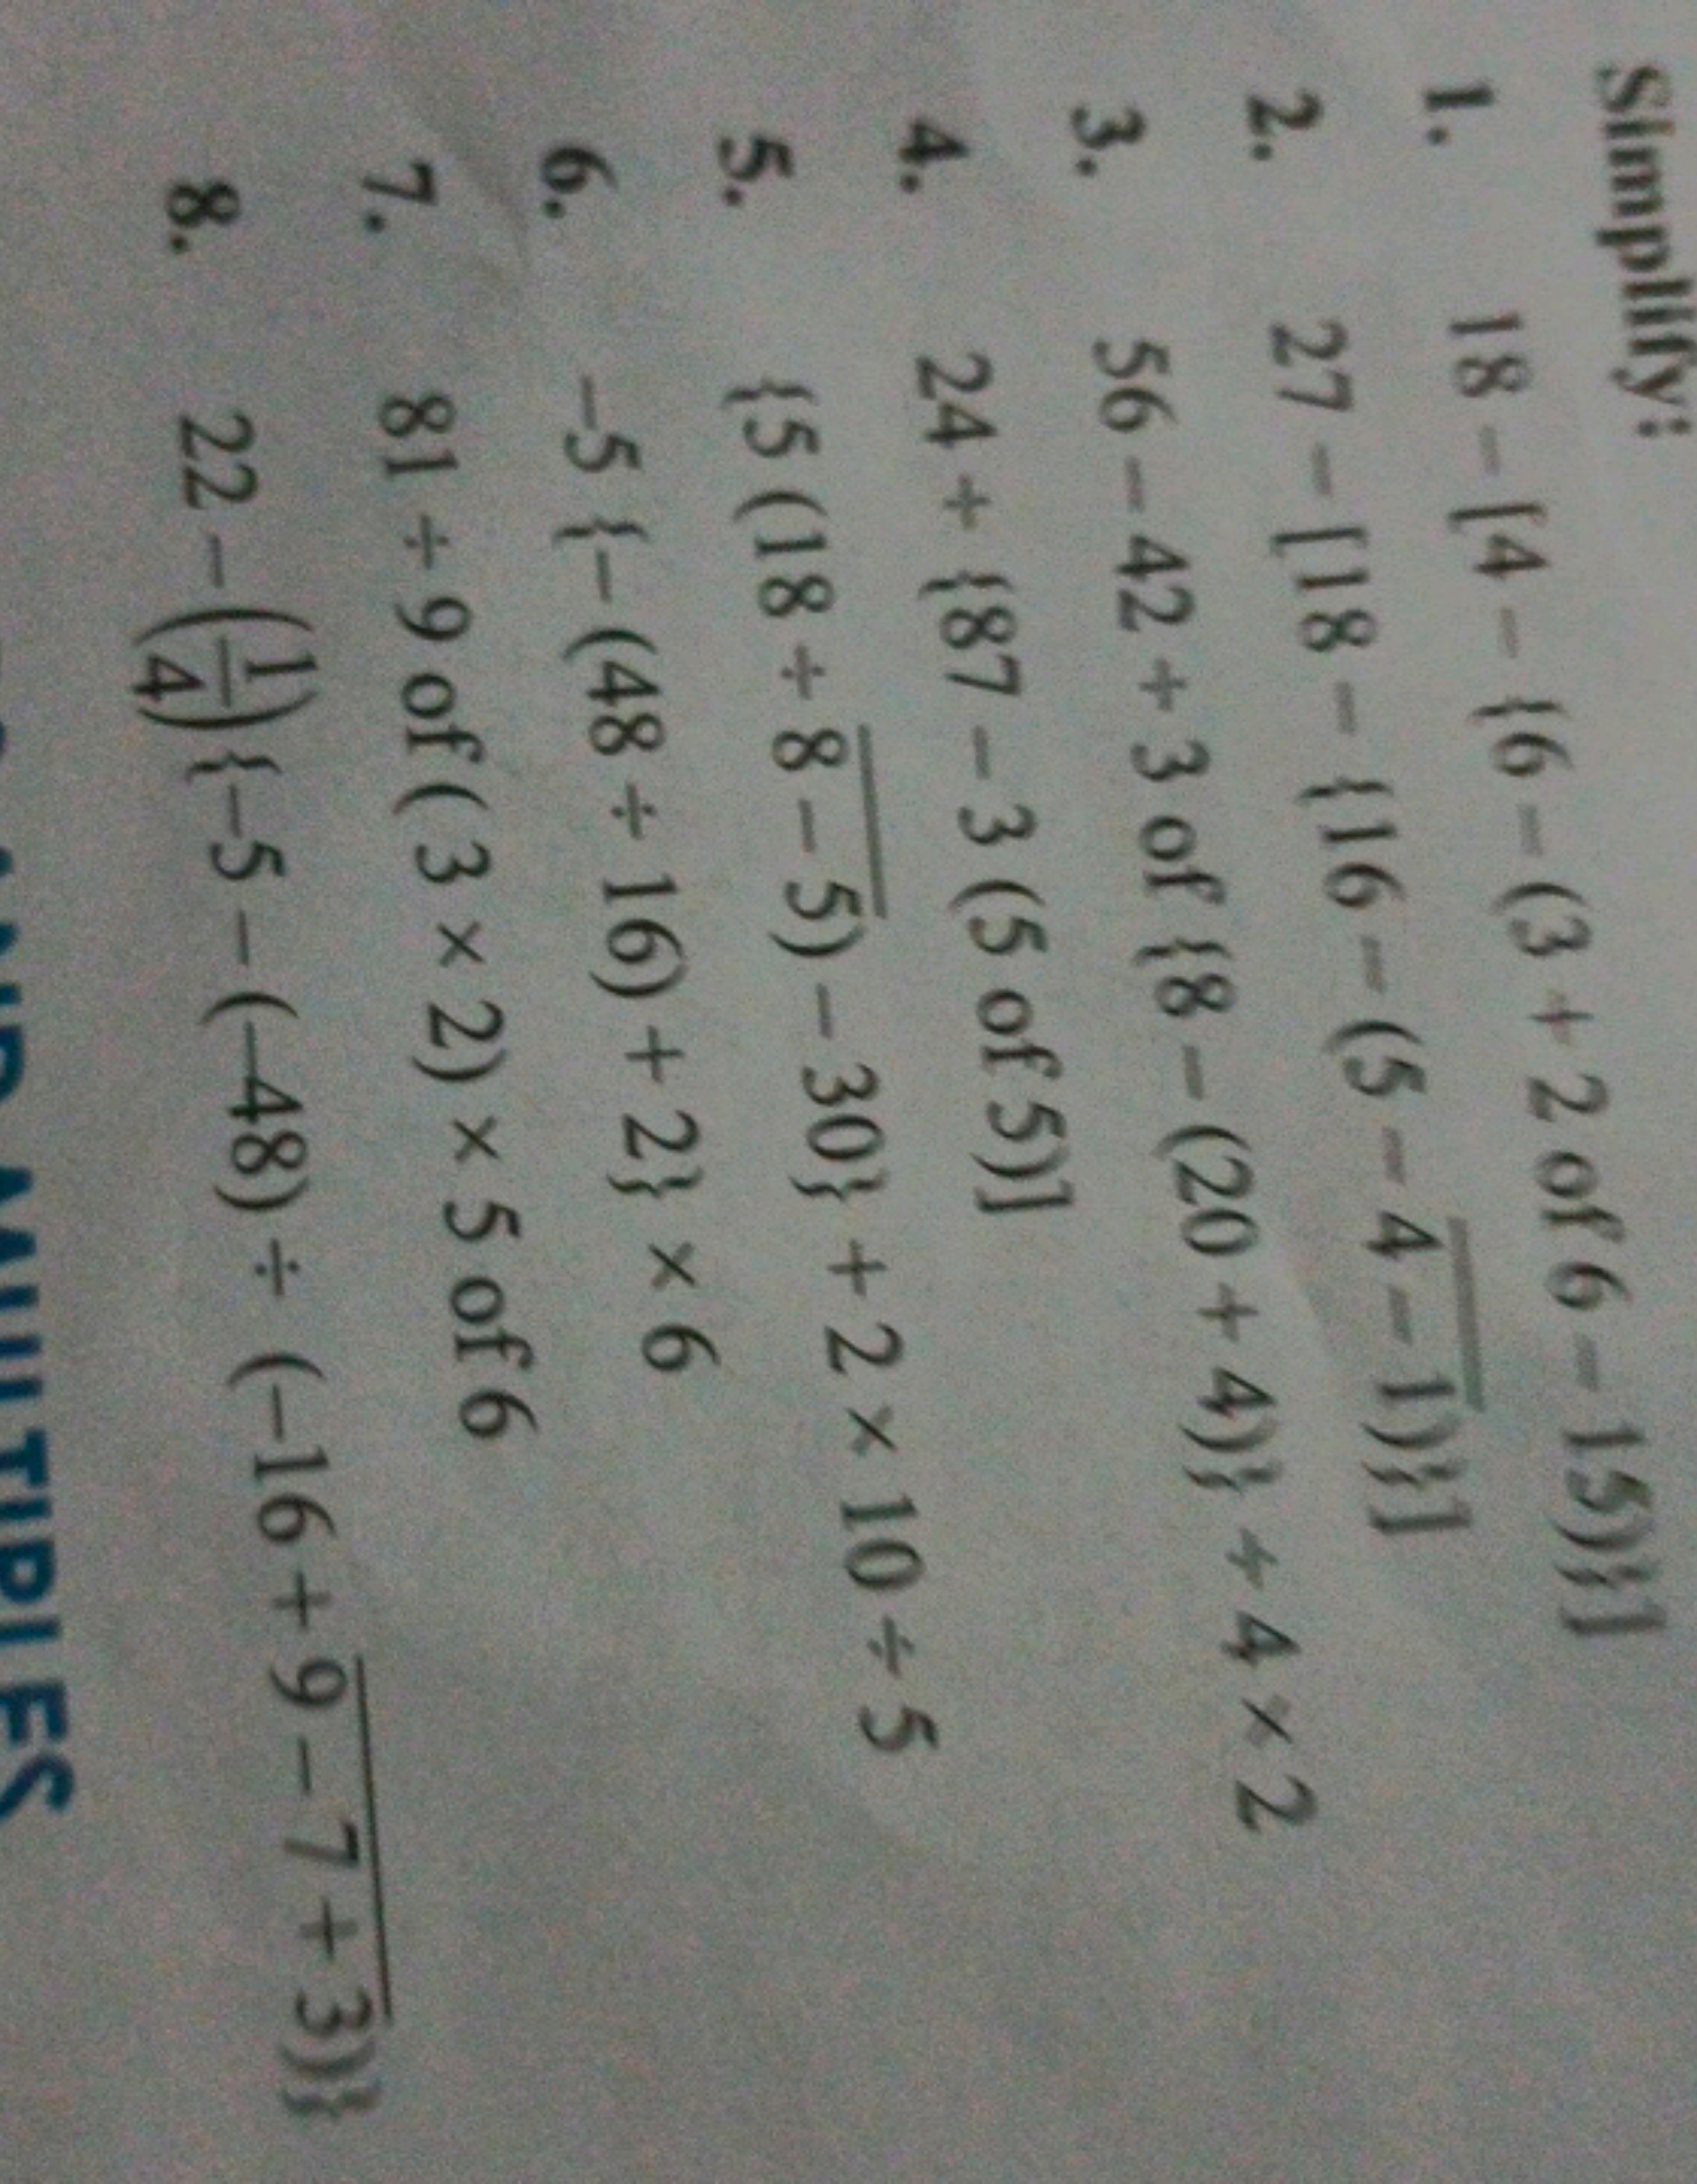 Simplify:
1. 18 – [4 – {6 – (3 + 2 of 6 – 15)}]
2. 27 – [18 – {16 – (5 – 4̅ ̅–̅ ̅1̅)}]
3. 56 – 42 + 3 of {8 – (20 + 4)} ÷ 4 × 2
4. 24 + {87 – 3 (5 of 5)]
5. {5 (18 ÷ 8̅ ̅–̅ ̅5̅) – 30} + 2 × 10 ÷ 5
6. –5 {– (48 ÷ 16) + 2} × 6
7. 81 ÷ 9 of ( 3 × 2) × 5 of 6
8. 22 – (1/4) {–5 – (–48) ÷ (–16 + 9̅ ̅–̅ ̅7̅ ̅+̅ ̅3̅)}
MULTIPLES